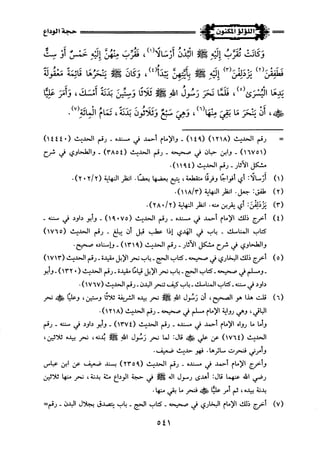 حجة الوداع
اللؤلؤ المكنون
وَكَانَتْ تُقَرَّبُ إِلَيْهِ ﷺ البُدْنُ أَرْسَالًا(١)، فَقُرِّبَ مِنْهُنَّ إِلَيْهِ خَمْسٌ أَوْ سِتٌّ
فَطَفِقْنَ(٢) يَزْدَلِفْنَ(٣) إِلَيْهِ ﷺ بِأَيَّتِهِنَّ يَبْدَأُ(٤)، وَكَانَ ﷺ يَنْحَرُهَا قَائِمَةً مَعْقُولَةً
يَدُهَا اليُسْرَى(٥)، فَلَمَّا نَحَرَ رَسُولُ اللهِ ﷺ ثَلَاثًا وَسِتِّينَ بَدَنَةً، أَمْسَكَ، وَأَمَرَ عَلِيًّا
ﷺ، أَنْ يَنْحَرَ مَا بَقِيَ مِنْهَا(٦)، وَهِيَ سَبْعٌ وَثَلَاثُونَ بَدَنَةً، تَمَامُ المِائَةِ(٧).
= رقم الحديث (١٢١٨) (١٤٩) - والإمام أحمد في مسنده - رقم الحديث (١٤٤٤٠)
(١٦٧٥١) - وابن حبان في صحيحه - رقم الحديث (٣٨٥٤) - والطحاوي في شرح
مشكل الآثار - رقم الحديث (١١٩٤).
(١) أرسالًا: أي أفواجًا وفرقًا متقطعة، يتبع بعضها بعضًا. انظر النهاية (٢٠٢/٢).
(٢) طفق: جعل. انظر النهاية (١١٨/٣).
(٣) يَزْدَلِفْنَ: أي يقربن منه. انظر النهاية (٢٨٠/٢).
(٤) أخرج ذلك الإمام أحمد في مسنده - رقم الحديث (١٩٠٧٥) - وأبو داود في سننه -
كتاب المناسك - باب في الهدي إذا عطب قبل أن يبلغ - رقم الحديث (١٧٦٥)
والطحاوي في شرح مشكل الآثار - رقم الحديث (١٣١٩) - وإسناده صحيح.
(٥) أخرج ذلك البخاري في صحيحه - كتاب الحج - باب نحر الإبل مقيدة - رقم الحديث (١٧١٣)
- ومسلم في صحيحه - كتاب الحج - باب نحر الإبل قيامًا مقيدة - رقم الحديث (١٣٢٠) - وأبو
داود في سننه - كتاب المناسك - باب كيف تنحر البدن - رقم الحديث (١٧٦٧).
(٦) قلت هذا هو الصحيح، أن رسول الله ﷺ نحر بيده الشريفة ثلاثًا وستين، وعليًا نحر
الباقي، وهي رواية الإمام مسلم في صحيحه - رقم الحديث (١٢١٨).
وأما ما رواه الإمام أحمد في مسنده - رقم الحديث (١٣٧٤) - وأبو داود في سننه - رقم
الحديث (١٧٦٤) عن علي قال: لما نحر رسول الله ﷺ بُدنه، نحر بيده ثلاثين،
وأمرني فنحرت سائرها. فهو حديث ضعيف.
وأخرج الإمام أحمد في مسنده - رقم الحديث (٢٣٥٩) بسند ضعيف عن ابن عباس
رضي الله عنهما قال: أهدى رسول الله ﷺ في حجة الوداع مئة بدنة، نحر منها ثلاثين
بدنة بيده، ثم أمر عليًا فنحر ما بقي منها.
(٧) أخرج ذلك الإمام البخاري في صحيحه - كتاب الحج - باب يتصدق بجلال البدن - رقم=
٥٤١